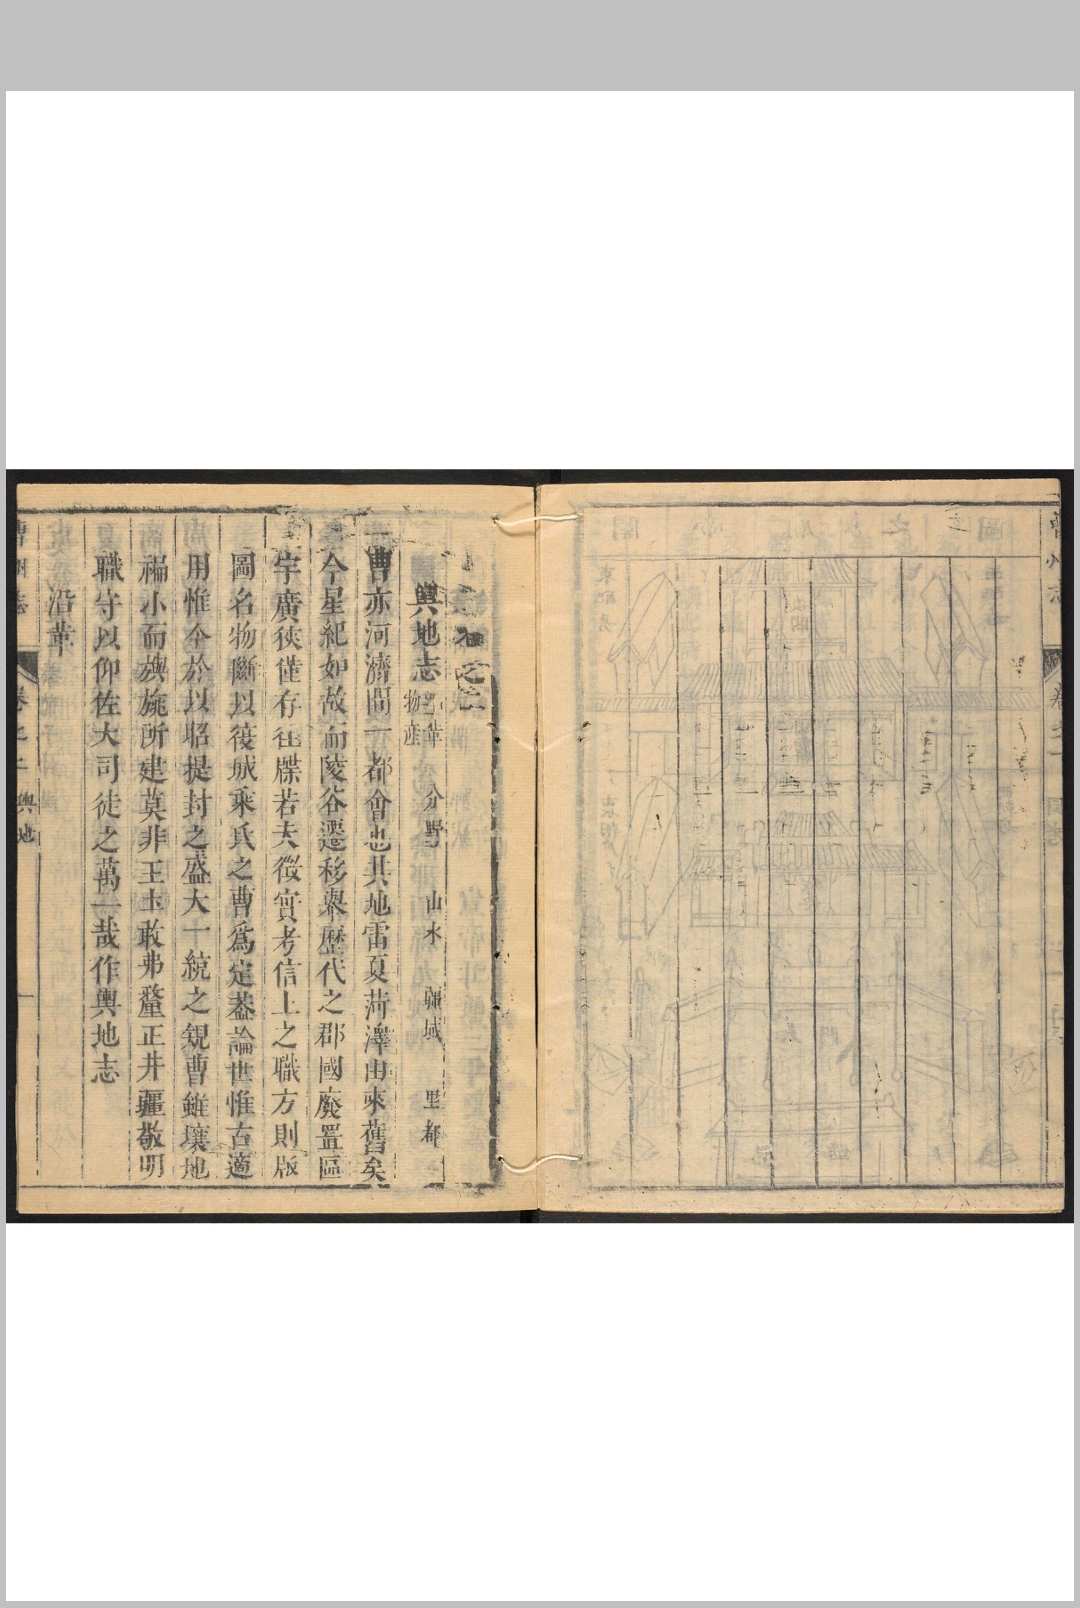 輿地志 沿革 分野 山水 疆域 里都
物產
曹亦河濟間一都會也其地雷夏菏澤由來舊矣
今星紀如故而陵谷遷移舉歷代之郡國廢置區
宇廣狹僅存往牒若夫徵實考信上之職方則版
圖名物斷以後城乘氏之曹爲定蓋論世惟古適
用惟今於以昭提封之盛大一統之規曹雖壤地
褊小而旟旐所建莫非王土敢弗釐正井疆敬明
職守以仰佐大司徒之萬一哉作輿地志
沿革
卷之二 輿地 一